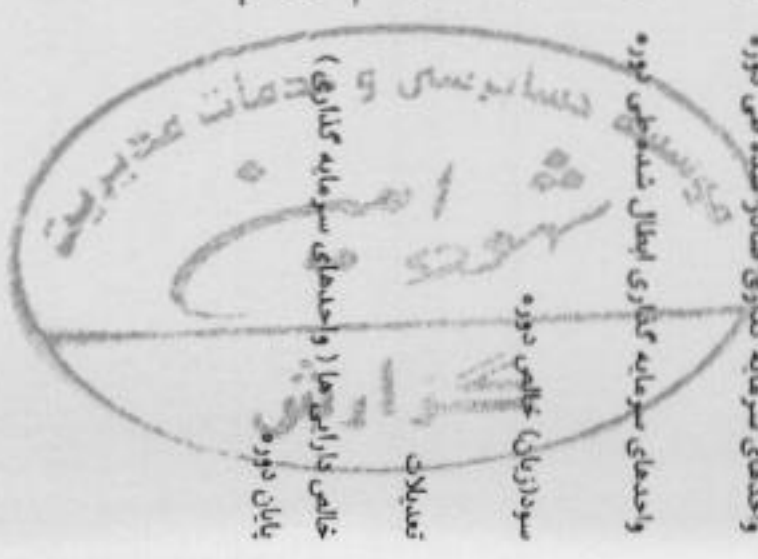 واحدهای سرمایه گذاری صادر شده طی دوره
واحدهای سرمایه گذاری ابطال شده طی دوره
سود(زیان) خالص دوره
تعدیلات
خالص دارایی ها ( واحدهای سرمایه گذاری )
پایان دوره
موسسه حسابرسی و خدمات مدیریت
گزارش